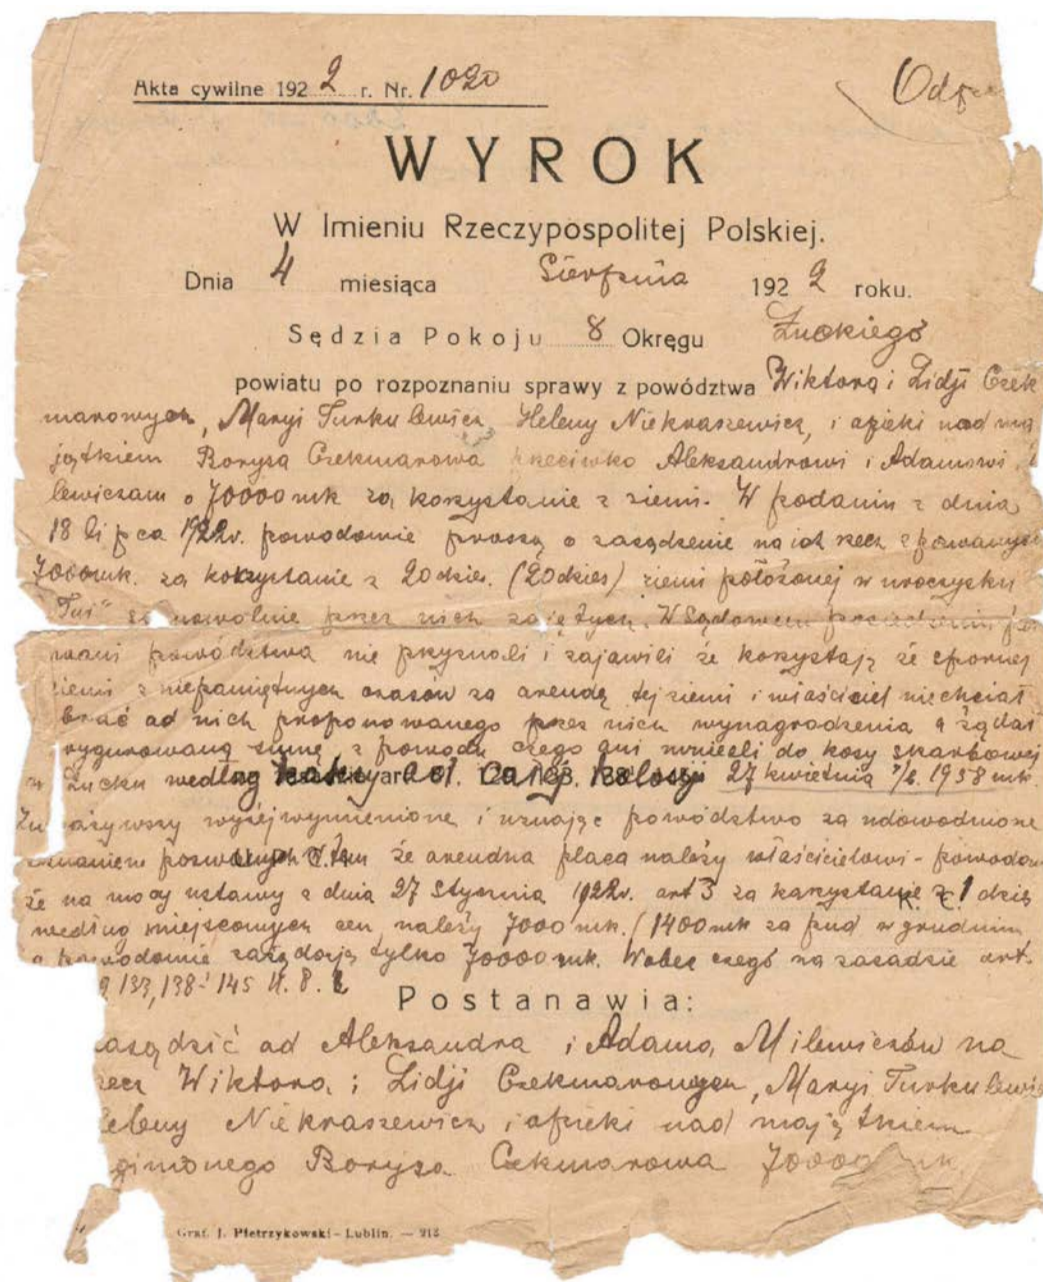 Akta cywilne 1922 r. Nr. 1020
WYROK
W Imieniu Rzeczypospolitej Polskiej.
Dnia 4 miesiąca Sierpnia 1922 roku.
Sędzia Pokoju 8 Okręgu Łuckiego
powiatu po rozpoznaniu sprawy z powództwa Wiktora i Lidji Czek
marowych, Maryi Turkulewicz, Heleny Niekraszewicz, i opieki nad ma
jątkiem Borysa Czekmarowa przeciwko Aleksandrowi i Adamowi
lewiczam o 70000 mk za korzystanie z ziemi. W podaniu z dnia
18 lipca 1922r. powodowie proszą o zasądzenie na ich rzecz z pozwanych
70000mk. za korzystanie z 20 dzies. (20 dzies) ziemi położonej w uroczysku
samowolnie przez nich zajętych. W Sądowem posiedzeniu
wani powództwa nie przyznali i zajawili że korzystają ze spornej
ziemi z niepamiętnych czasów za arendę tej ziemi i właściciel niechciał
brać od nich proponowanego przez nich wynagrodzenia a żądał
wygurowaną sumę, z powodu czego oni wnieśli do kasy skarbowej
w Łucku według 27 kwietnia 1958 mk.
Zu ażywszy wyżejwymienione i uznając powództwo za udowodnione
znaniem pozwanych że arendna płaca należy właścicielowi - powodom
że na mocy ustawy z dnia 27 Stycznia 1922r. art 3 za korzystanie z 1 dzies
według miejscowych cen, należy 7000 mk. (1400 mk za pud w grudniu
a powodowie zażądają tylko 70000 mk. Wobec czego na zasadzie art.
9 133, 138 i 145
Postanawia:
asądzić od Aleksandra i Adama Milewiczów na
rzecz Wiktora i Lidji Czekmarowych, Maryi Turkulewicz
eleny Niekraszewicz i opieki nad majątkiem
ginionego Borysa Czekmarowa 70000 mk
Graf. J. Pietrzykowski - Lublin. — 213